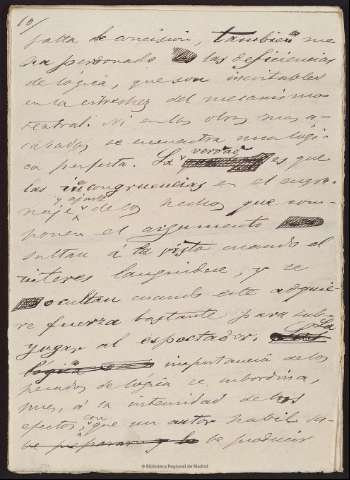 10/
falta de concisión, también me
ha perdonado las deficiencias
de lógica, que son inevitables
en la estrechez del mecanismo
teatral. Ni en las obras más a-
cabadas se encuentra una lógi-
ca perfecta. La verdad es que
las incongruencias en el engra-
naje y ajuste de los hechos que com-
ponen el argumento
saltan á la vista cuando el
interes languidece, y se
ocultan cuando este adquie-
re fuerza bastante para sub-
yugar al espectador. La
importancia de los
pecados de lógica se subordina,
pues, á la intensidad de los
efectos con que un autor hábil sa-
be producir
© Biblioteca Regional de Madrid